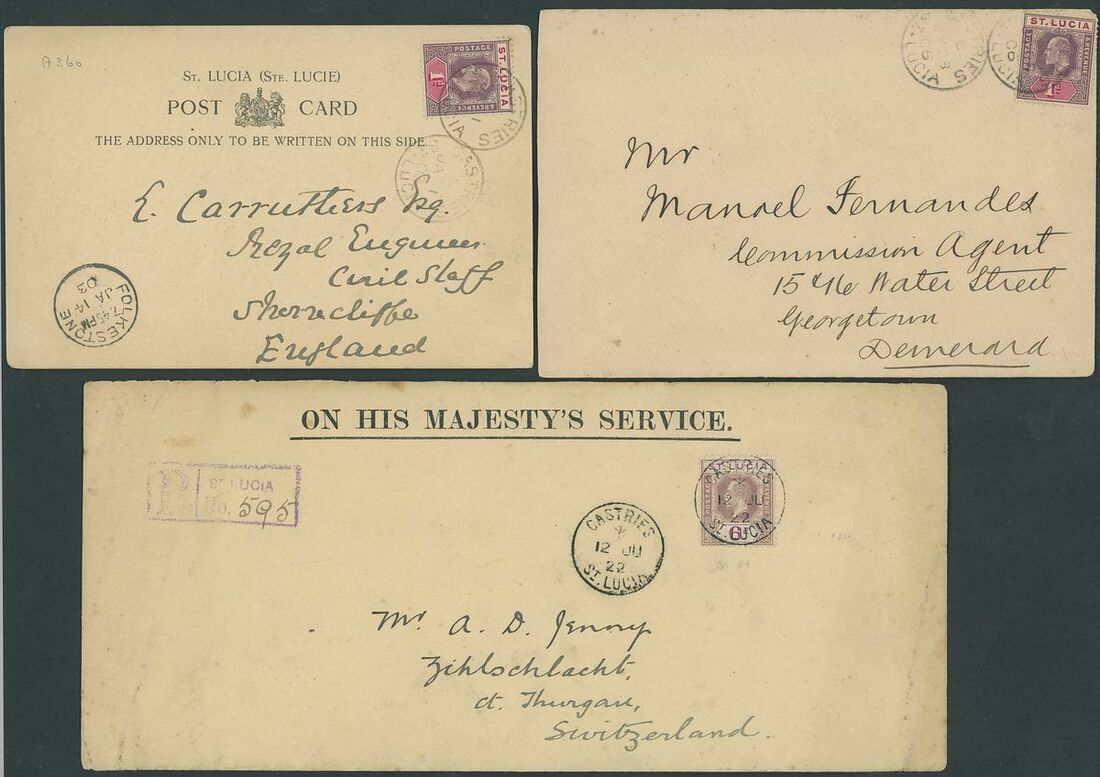 A360
ST. LUCIA (STE. LUCIE)
POST CARD
THE ADDRESS ONLY TO BE WRITTEN ON THIS SIDE.
POSTAGE
& REVENUE
ST. LUCIA
1d
CASTRIES
JA
ST. LUCIA
E. Carruthers Esq.
Royal Engineer
Civil Staff
Shorncliffe
England
FOLKESTONE
7.45PM
JA 14
03
CASTRIES
ST. LUCIA
06
ST. LUCIA
POSTAGE
& REVENUE
1d
Mr
Manoel Fernandes
Commission Agent
15 &16 Water Street
Georgetown
Demerara
ON HIS MAJESTY'S SERVICE.
R
ST. LUCIA
No. 595
CASTRIES
12 JU
22
ST. LUCIA
ST. LUCIA
POSTAGE
REVENUE
6d
CASTRIES
12 JU
22
ST. LUCIA
Mr A. D. Jenny
Zihlschlacht,
ct. Thurgau,
Switzerland.